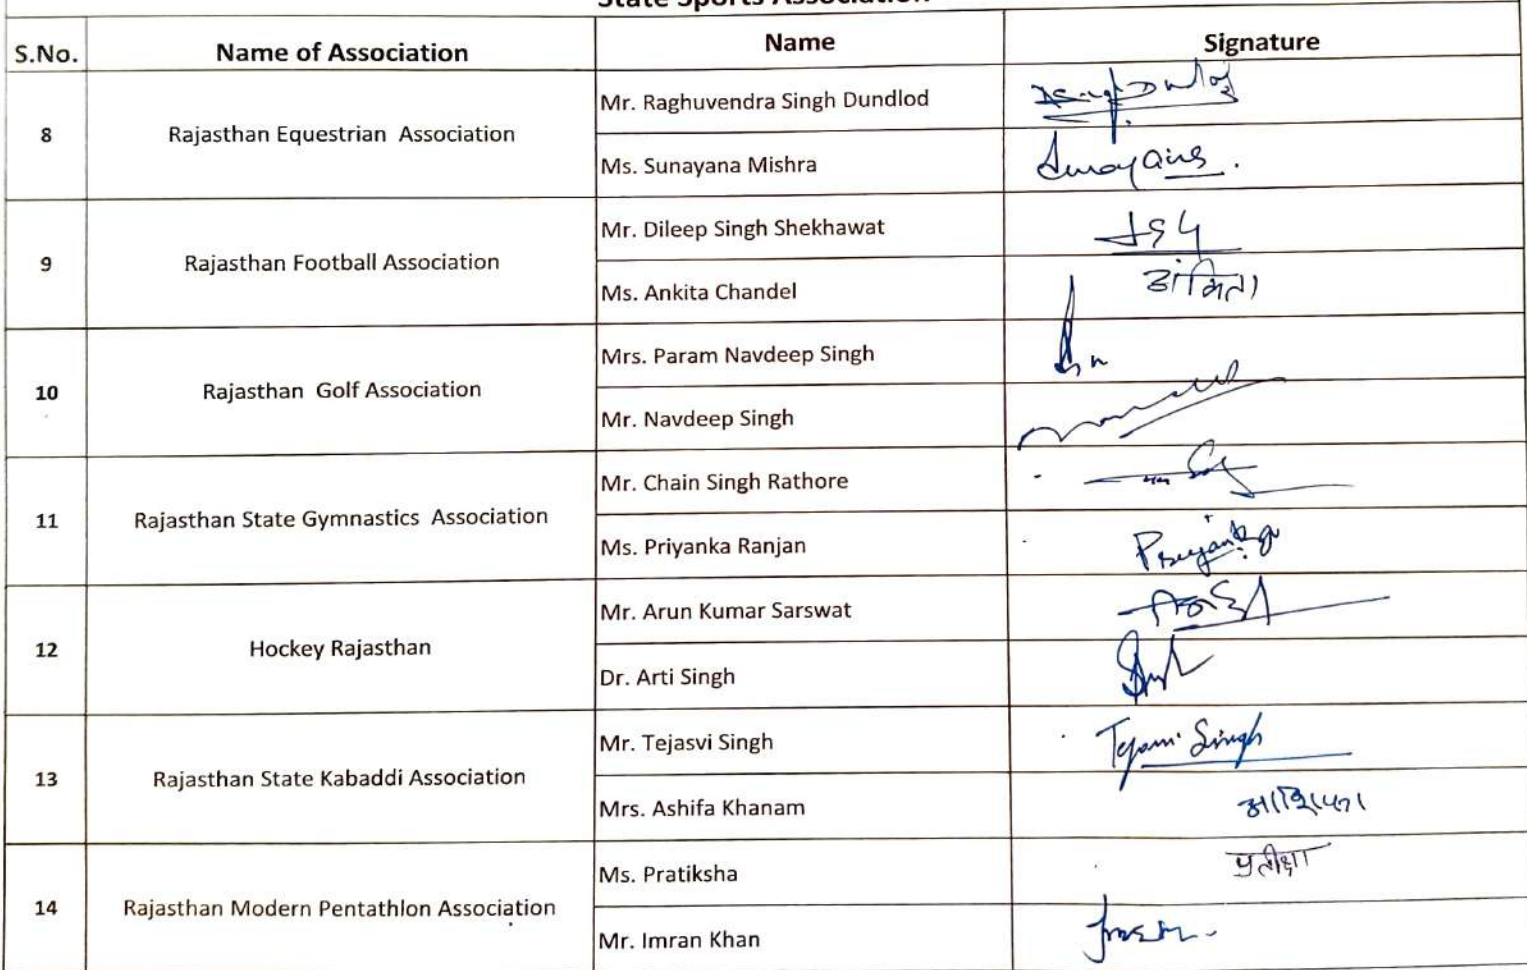 State Sports Association
S.No. Name of Association Name Signature
8 Rajasthan Equestrian Association
Mr. Raghuvendra Singh Dundlod
Ms. Sunayana Mishra
9 Rajasthan Football Association
Mr. Dileep Singh Shekhawat
Ms. Ankita Chandel
10 Rajasthan Golf Association
Mrs. Param Navdeep Singh
Mr. Navdeep Singh
11 Rajasthan State Gymnastics Association
Mr. Chain Singh Rathore
Ms. Priyanka Ranjan Priyanka
12 Hockey Rajasthan
Mr. Arun Kumar Sarswat
Dr. Arti Singh
13 Rajasthan State Kabaddi Association
Mr. Tejasvi Singh Tejasvi Singh
Mrs. Ashifa Khanam
14 Rajasthan Modern Pentathlon Association
Ms. Pratiksha प्रतीक्षा
Mr. Imran Khan